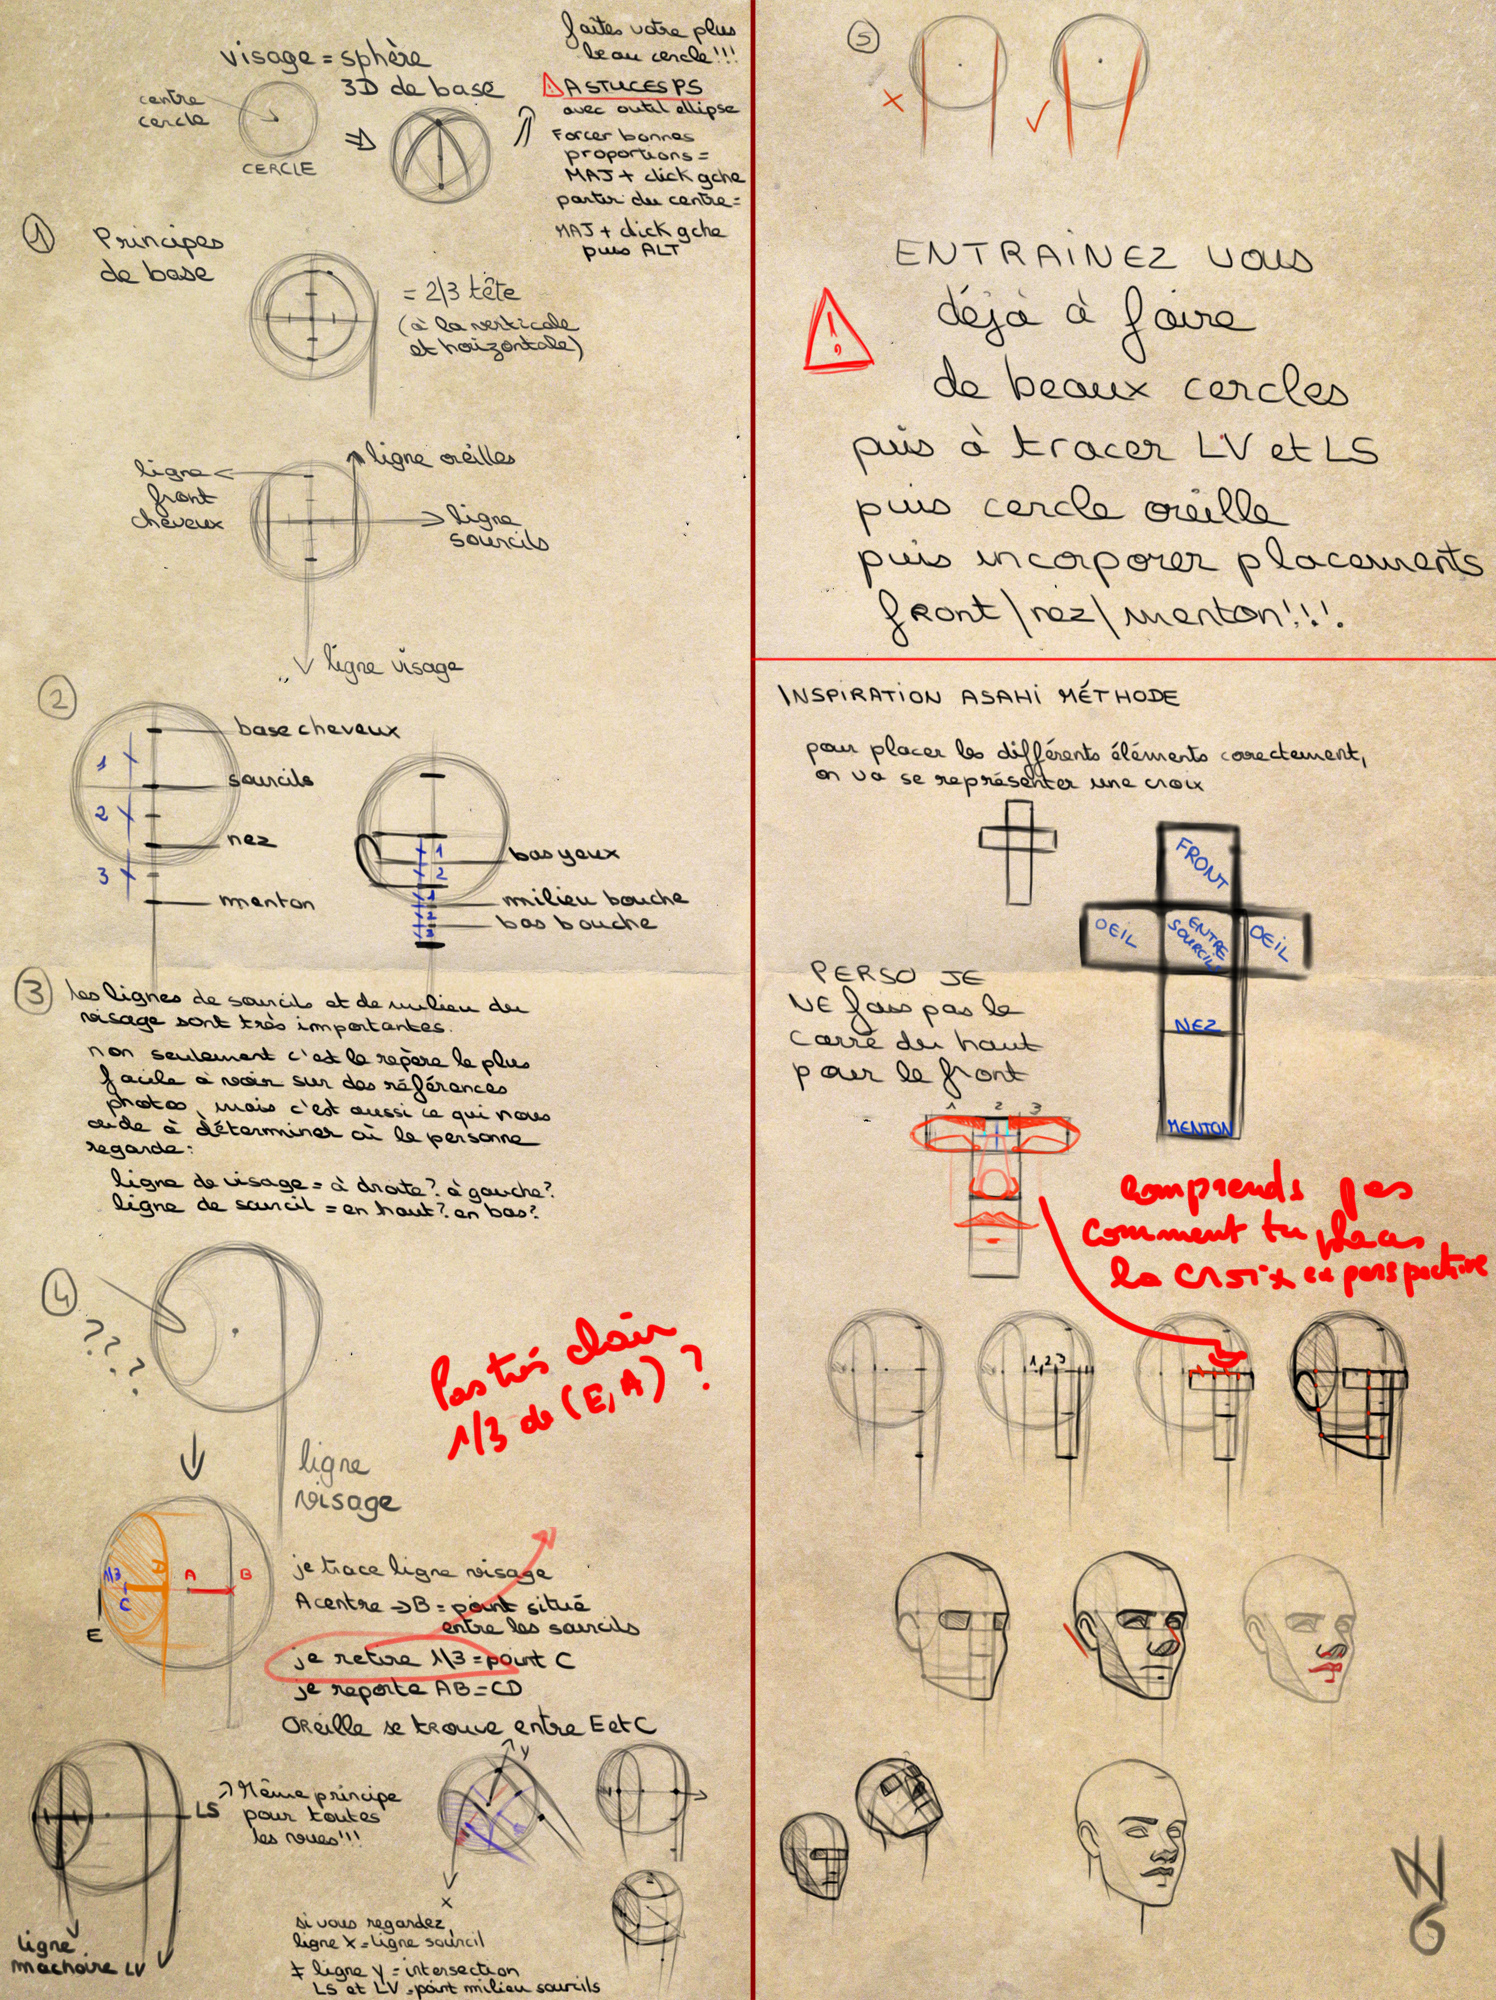 visage = sphère
3D de base
centre
cercle
CERCLE
faites votre plus
beau cercle!!!
ASTUCES PS
avec outil ellipse
Forcer bonnes
proportions =
MAJ + click gche
partir du centre =
MAJ + click gche
puis ALT
1
Principes
de base
= 2/3 tête
(à la verticale
et horizontale)
ligne
front
cheveux
ligne oreilles
ligne
sourcils
ligne visage
2
base cheveux
sourcils
nez
menton
1
2
3
bas yeux
milieu bouche
bas bouche
1
2
1
2
3
3
les lignes de sourcils et de milieu du
visage sont très importantes.
non seulement c'est le repère le plus
facile à voir sur des références
photos, mais c'est aussi ce qui nous
aide à déterminer où la personne
regarde:
ligne de visage = à droite? à gauche?
ligne de sourcil = en haut? en bas?
4
???
Pas très clair
1/3 de (E,A) ?
ligne
visage
1/3
A
A
B
C
E
je trace ligne visage
A centre -> B = point situé
entre les sourcils
je retire 1/3 = point C
je reporte AB = CD
Oreille se trouve entre E et C
LS
Même principe
pour toutes
les vues!!!
ligne
machoire LV
y
x
si vous regardez,
ligne x = ligne sourcil
+ ligne y = intersection
LS et LV = point milieu sourcils
5
ENTRAINEZ vous
déjà à faire
de beaux cercles
puis à tracer LV et LS
puis cercle oreille
puis incorporer placements
front/nez/menton!!!
INSPIRATION ASAHI MÉTHODE
pour placer les différents éléments correctement,
on va se représenter une croix
FRONT
OEIL
ENTRE
SOURCILS
OEIL
NEZ
MENTON
PERSO JE
NE fais pas le
carré du haut
pour le front
1 2 3
comprends pas
comment tu places
la croix en perspective
1 2 3